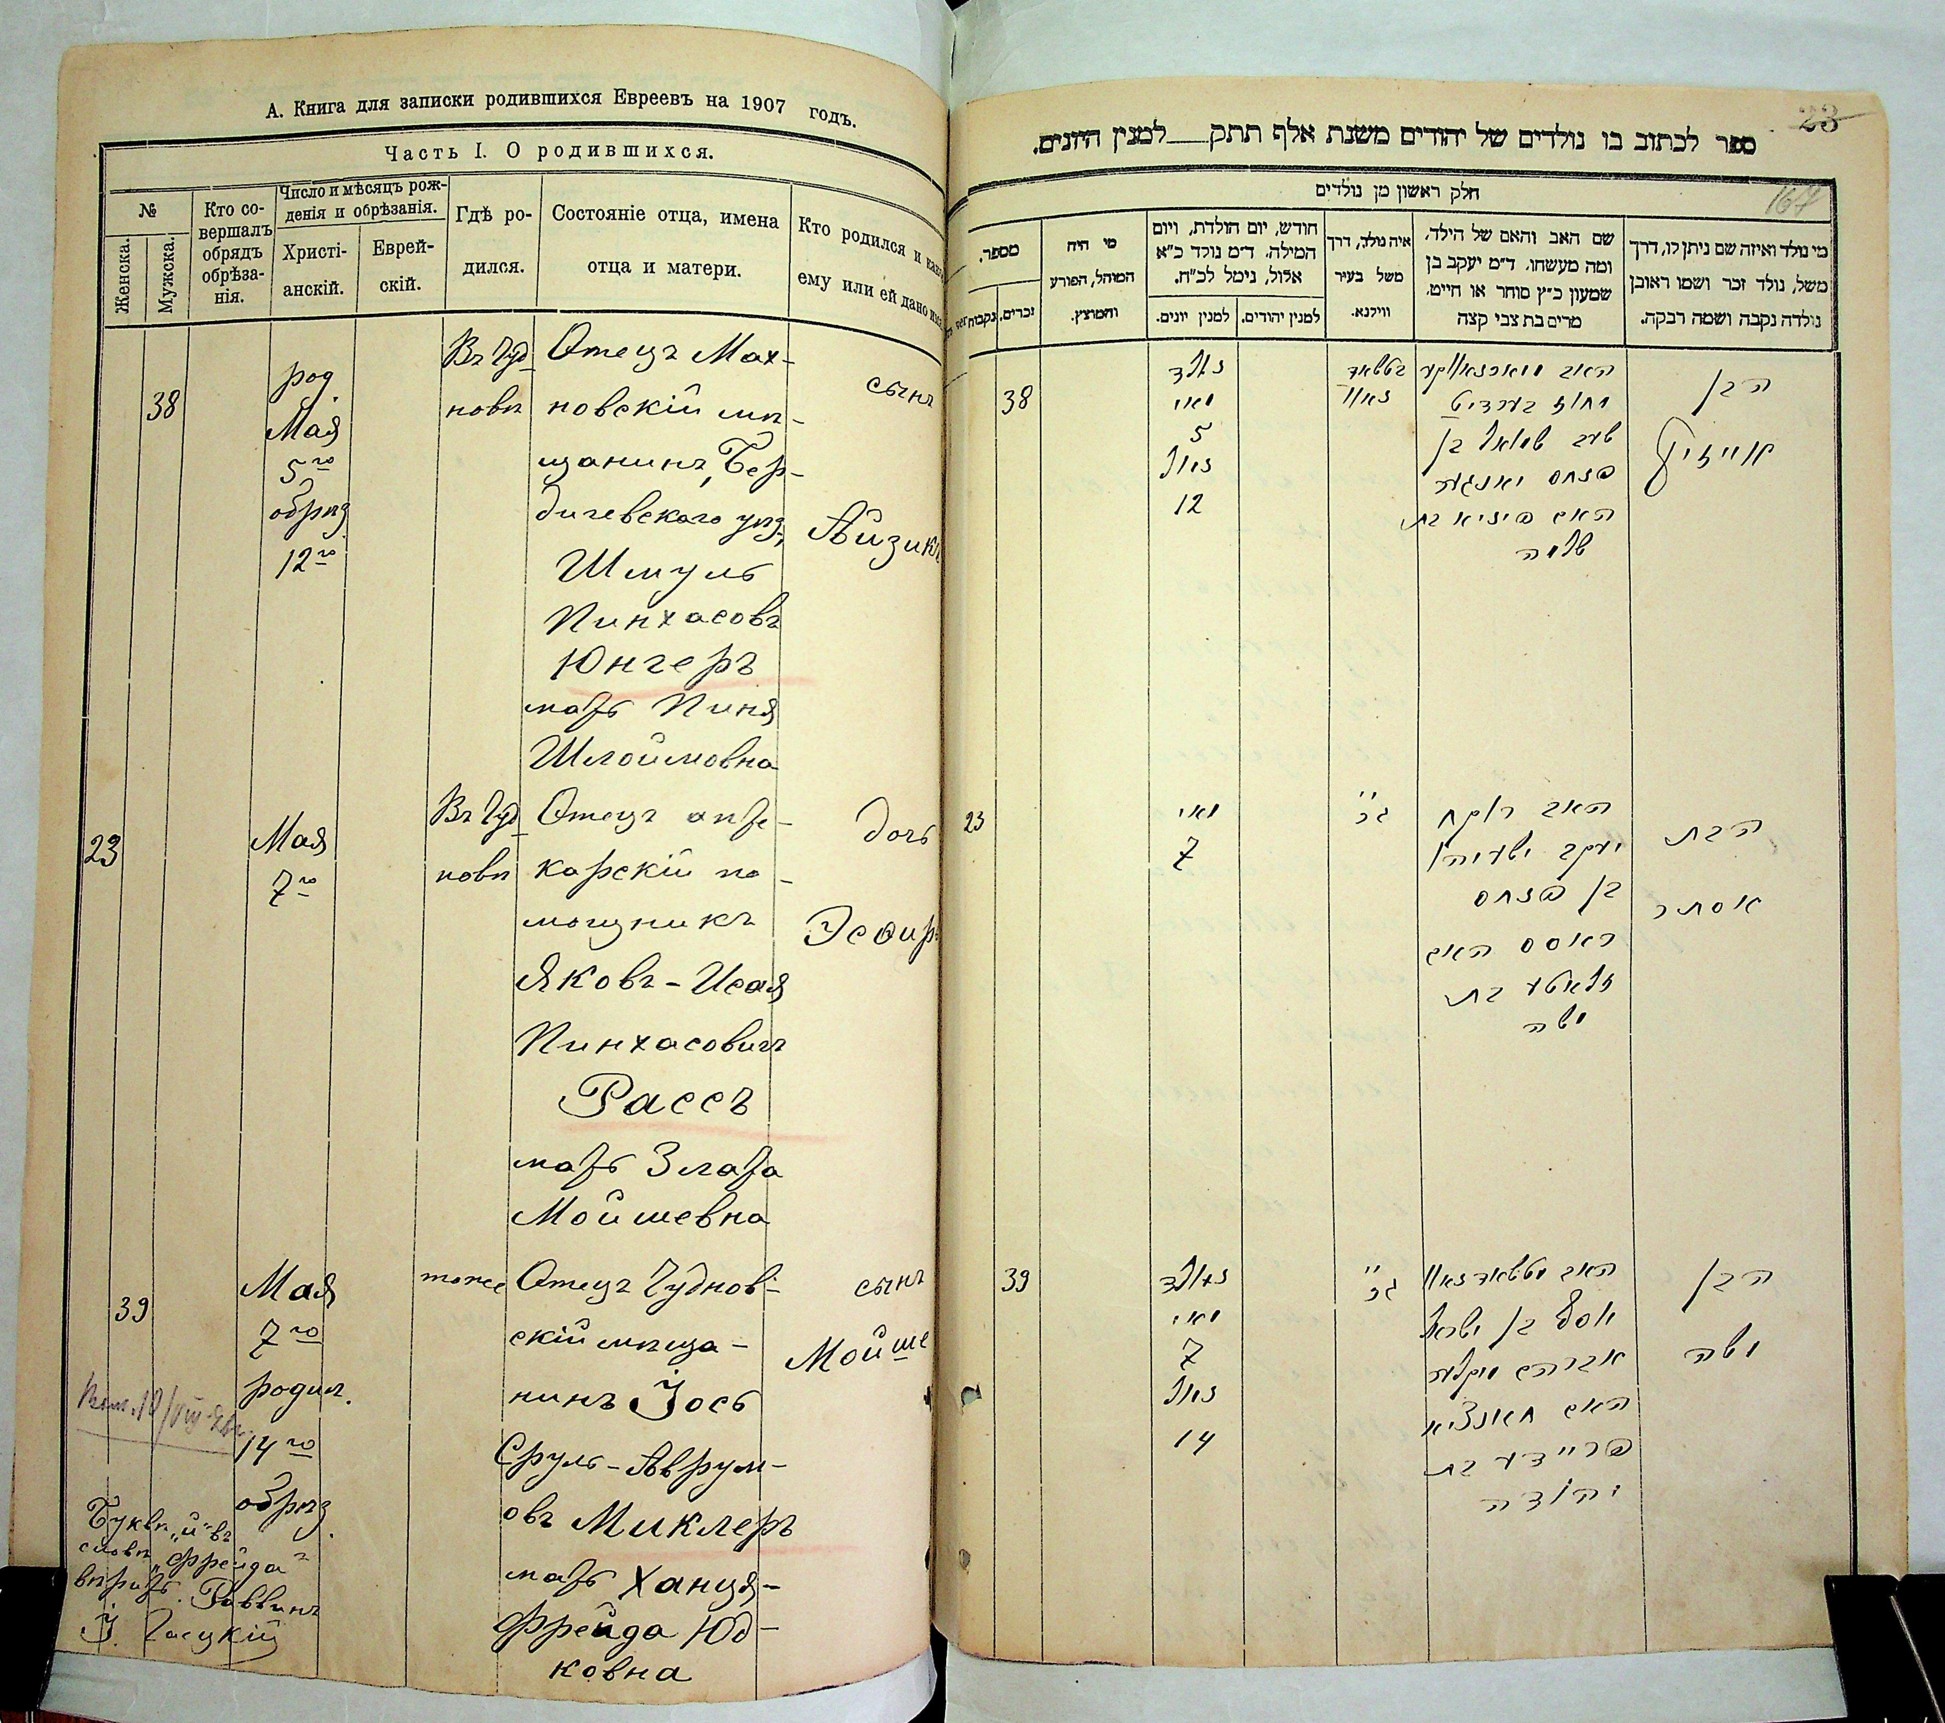 А. Книга для записки родившихся Евреевъ на 1907 годъ.
Часть I. О родившихся.
№
Женска.
Мужска.
Кто со-
вершалъ
обрядъ
обрѣза-
нія.
Число и мѣсяцъ рож-
денія и обрѣзанія.
Христі-
анскій.
Еврей-
скій.
Гдѣ ро-
дился.
Состояніе отца, имена
отца и матери.
Кто родился и како
ему или ей дано имя
38
род.
Мая
5го
обрѣз.
12го
Въ Чуд-
новѣ
Отецъ Мах-
новскій мѣ-
щанинъ, Бер-
дичевскаго уѣз,
Шмуль
Пинхасовъ
Юнгеръ
мать Пиня
Шлоймовна
сынъ
Айзикъ
23
Мая
7го
Въ Чуд-
новѣ
Отецъ апте-
карскій по-
мощникъ
Яковъ-Исая
Пинхасовичъ
Рассъ
мать Злата
Мойшевна
дочь
Эсѳирь
39
Мая
7го
родил.
14го
обрѣз.
тоже
Отецъ Чуднов-
скій мѣща-
нинъ Іось
Сруль-Аврум-
овъ Миклеръ
мать Ханця-
Фрейда Юд-
ковна
сынъ
Мойше
Буквѣ „й" въ
словѣ „Фрейда"
вѣрить. Раввинъ
23
167
ספר לכתוב בו נולדים של יהודים משנת אלף תתק למנין היונים.
חלק ראשון מן נולדים
מי נולד ואיזה שם ניתן לו, דרך
משל, נולד זכר ושמו ראובן
נולדה נקבה ושמה רבקה.
שם האב והאם של הילד,
ומה מעשהו. ד״מ יעקב בן
שמעון כ״ץ סוחר או חייט,
מרים בת צבי קצה
איה נולד, דרך
משל בעיר
ווילנא.
חודש, יום הולדת, ויום
המילה. ד״מ נולד כ״א
אלול, נימל לכ״ח.
למנין יהודים.
למנין יונים.
מי היה
המוהל, הפורע
והמוצץ.
מספר.
זכרים.
נקבות
38
נולד
מאי
5
נימול
12
הבן
אייזיק
שמואל בן
פנחס יונגער
האם פיניא בת
שלמה
23
מאי
7
הבת
אסתר
האב רוקח
יעקב ישעיהו
בן פנחס
ראסס האם
זלאטע בת
משה
39
נולד
מאי
7
נימול
14
הבן
משה
יוסף בן ישראל
אברהם מיקלער
האם חאנציא
פריידע בת
יהודה